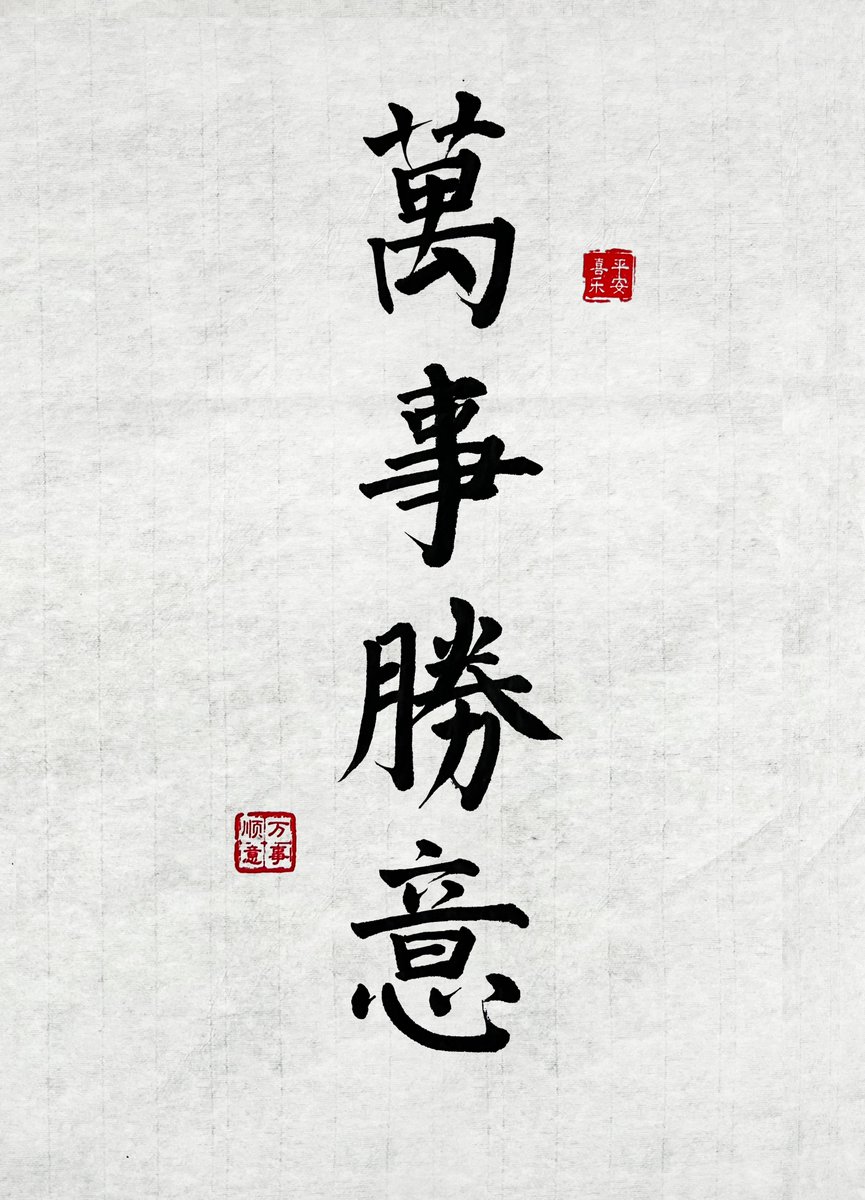 萬事勝意
平安
喜乐
万事
顺意